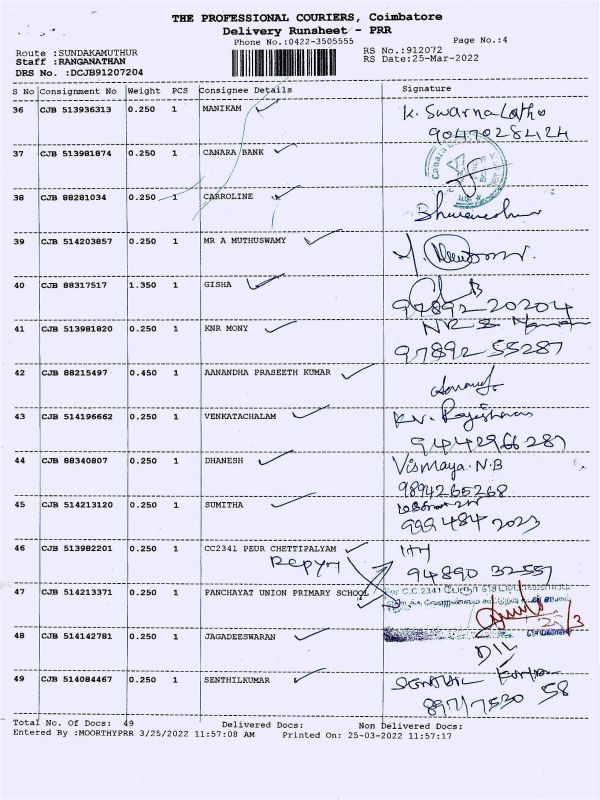 THE PROFESSIONAL COURIERS, Coimbatore
Delivery Runsheet - PRR
Phone No.:0422-3505555 Page No.:4
Route :SUNDAKAMUTHUR RS No.:912072
Staff :RANGANATHAN RS Date:25-Mar-2022
DRS No. :DCJB91207204
S No Consignment No Weight PCS Consignee Details Signature
36 CJB 513936313 0.250 1 MANIKAM K. Swarna Latha
9047028424
37 CJB 513981874 0.250 1 CANARA BANK
Canara
38 CJB 88281034 0.250 1 CARROLINE
Bhuvaneshwari
39 CJB 514203857 0.250 1 MR A MUTHUSWAMY
40 CJB 88317517 1.350 1 GISHA
97892 20204
41 CJB 513981820 0.250 1 KNR MONY
97892 55287
42 CJB 88215497 0.450 1 AANANDHA PRASEETH KUMAR
43 CJB 514196662 0.250 1 VENKATACHALAM
9442966287
44 CJB 88340807 0.250 1 DHANESH Vismaya. N.B
9894265268
45 CJB 514213120 0.250 1 SUMITHA
999 484 2023
46 CJB 513982201 0.250 1 CC2341 PEUR CHETTIPALYAM
94890 32557
47 CJB 514213371 0.250 1 PANCHAYAT UNION PRIMARY SCHOOL
C.C.2341
48 CJB 514142781 0.250 1 JAGADEESWARAN
DIL
49 CJB 514084467 0.250 1 SENTHILKUMAR
58
Total No. Of Docs: 49 Delivered Docs: Non Delivered Docs:
Entered By :MOORTHYPRR 3/25/2022 11:57:08 AM Printed On: 25-03-2022 11:57:17